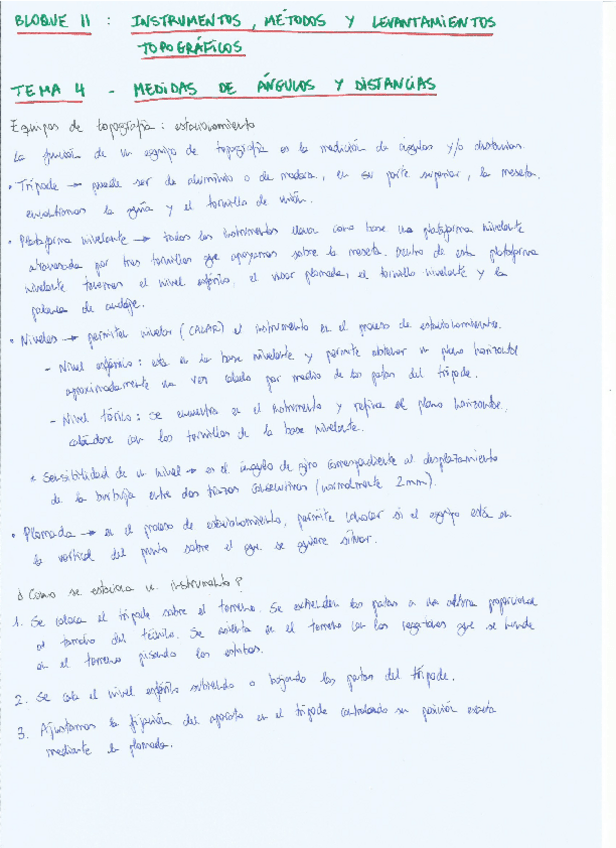 BLOQUE II : INSTRUMENTOS, MÉTODOS Y LEVANTAMIENTOS
TOPOGRÁFICOS
TEMA 4 - MEDIDAS DE ÁNGULOS Y DISTANCIAS
Equipos de topografía : estacionamiento
La función de un equipo de topografía es la medición de ángulos y/o distancias.
• Trípode → puede ser de aluminio o de madera, en su parte superior, la meseta,
encontramos la guía y el tornillo de unión.
• Plataforma nivelante → todos los instrumentos llevan como base una plataforma nivelante
atravesada por tres tornillos que apoyamos sobre la meseta. Dentro de esta plataforma
nivelante tenemos el nivel esférico, el visor plomada, el tornillo nivelante y la
palanca de anclaje.
• Niveles → permiten nivelar (CALAR) el instrumento en el proceso de estacionamiento.
- Nivel esférico : está en la base nivelante y permite obtener un plano horizontal
aproximadamente una vez calado por medio de las patas del trípode.
- Nivel tórico : se encuentra en el instrumento y refina el plano horizontal,
calándose con los tornillos de la base nivelante.
* Sensibilidad de un nivel → es el ángulo de giro correspondiente al desplazamiento
de la burbuja entre dos trazos consecutivos (normalmente 2mm).
• Plomada → en el proceso de estacionamiento, permite conocer si el equipo está en
la vertical del punto sobre el que se quiere situar.
¿Como se estaciona un instrumento?
1. Se coloca el trípode sobre el terreno. Se extienden las patas a una altura proporcional
al tamaño del técnico. Se asienta en el terreno con los regatones que se hunde
en el terreno pisando los estribos.
2. Se cala el nivel esférico subiendo o bajando las patas del trípode.
3. Ajustamos la fijación del aparato en el trípode controlando su posición exacta
mediante la plomada.